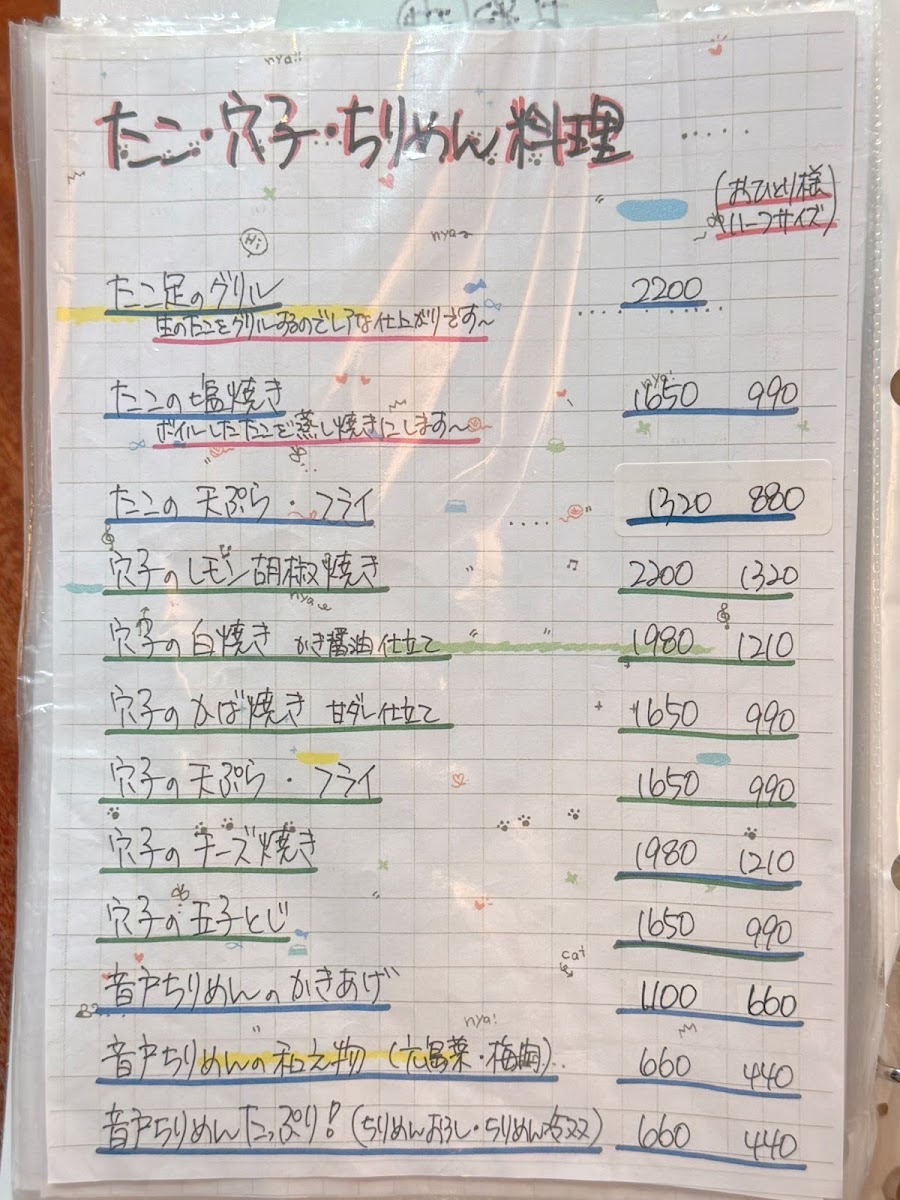 nya!!
たこ・穴子・ちりめん料理 ・・・・・
(おひとり様
ハーフサイズ)
Hi
nya~
たこ足のグリル 2200
生のたこをグリルするのでレアな仕上がりです〜
たこの塩焼き 1650 990
nya!
ボイルしたたこを蒸し焼きにします〜
たこの天ぷら・フライ 1320 880
穴子のレモン胡椒焼き 2200 1320
nya
穴子の白焼き かき醤油仕立て 1980 1210
穴子のかば焼き 甘ダレ仕立て 1650 990
穴子の天ぷら・フライ 1650 990
穴子のチーズ焼き 1980 1210
穴子の玉子とじ 1650 990
cat
音戸ちりめんのかきあげ 1100 660
nya!
音戸ちりめんの和え物 (広島菜・梅) 660 440
音戸ちりめんたっぷり! (ちりめんおろし・ちりめん冷ヌヌ) 660 440